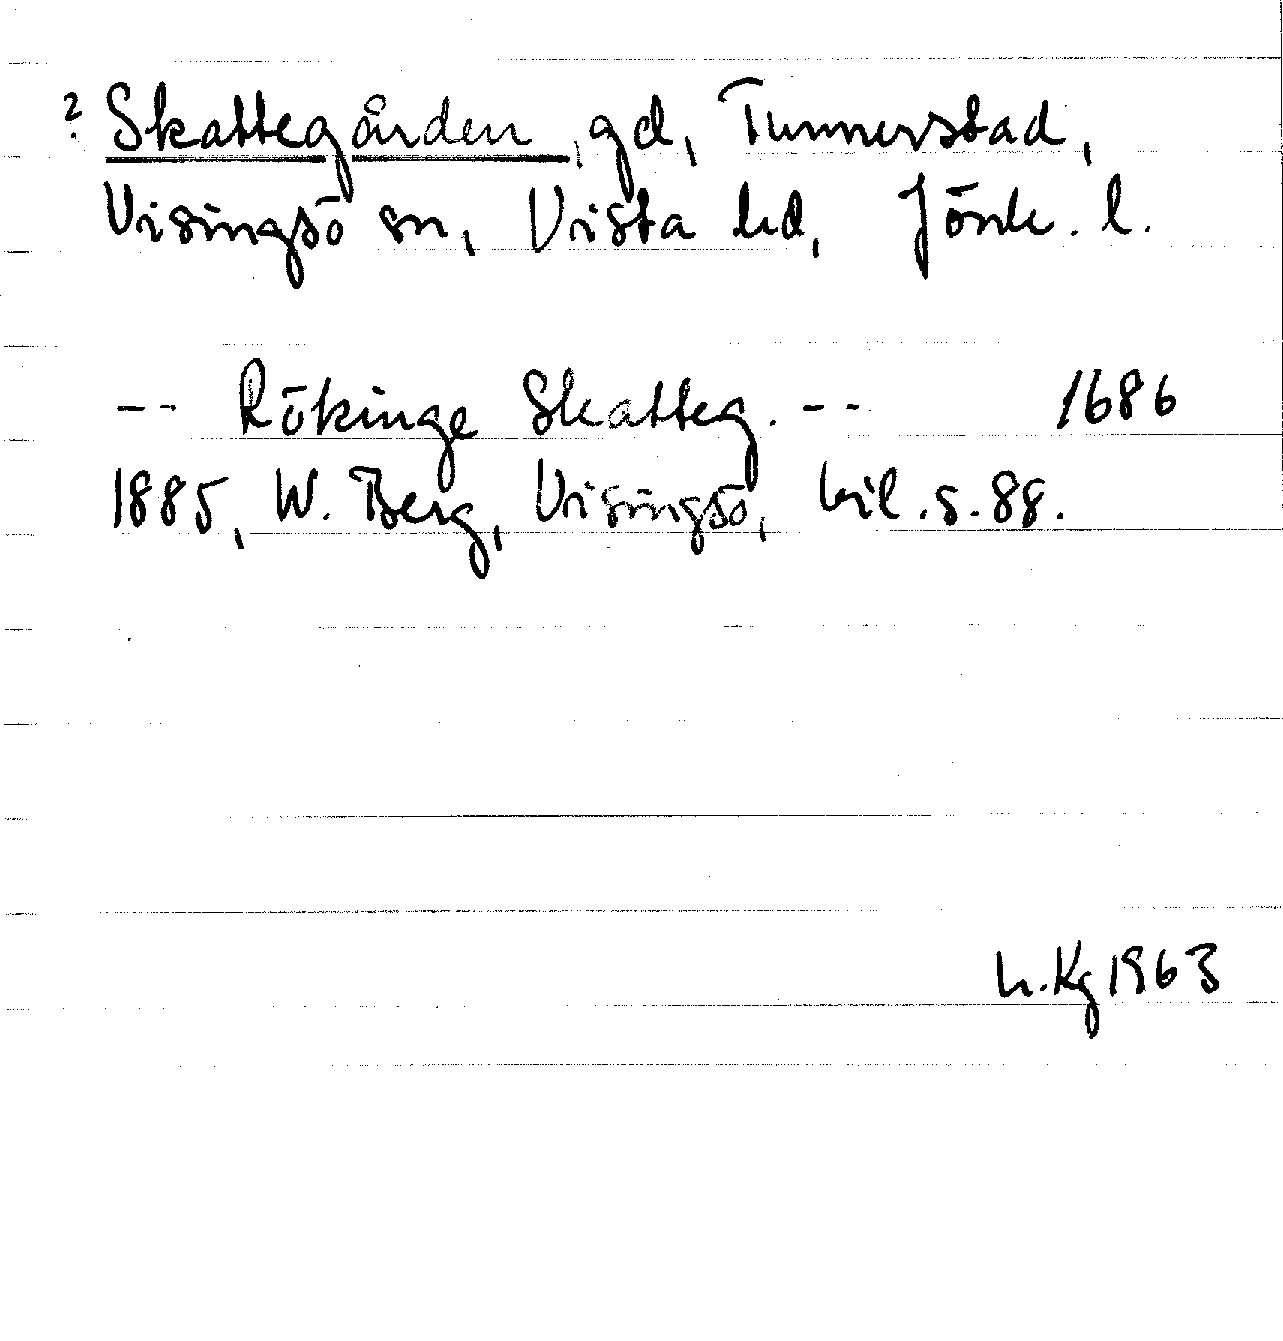 ? Skattegården, gd, Tunnerstad,
Visingsö sn, Vista hd, Jönk. l.
-- Rökinge Skatteg. -- 1686
1885, W. Berg, Visingsö, bil. s. 88.
h. Kg 1963